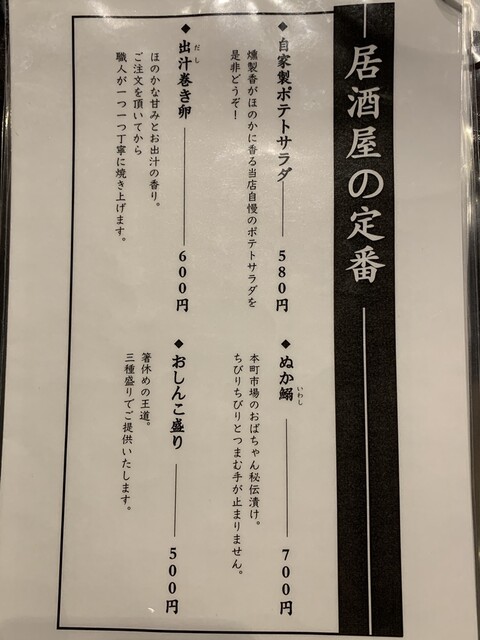 居酒屋の定番
◆自家製ポテトサラダ 580円
燻製香がほのかに香る当店自慢のポテトサラダを
是非どうぞ！
◆ぬか鰯 700円
いわし
本町市場のおばちゃん秘伝漬け。
ちびりちびりとつまむ手が止まりません。
◆出汁巻き卵 600円
だし
ほのかな甘みとお出汁の香り。
ご注文を頂いてから
職人が一つ一つ丁寧に焼き上げます。
◆おしんこ盛り 500円
箸休めの王道。
三種盛りでご提供いたします。